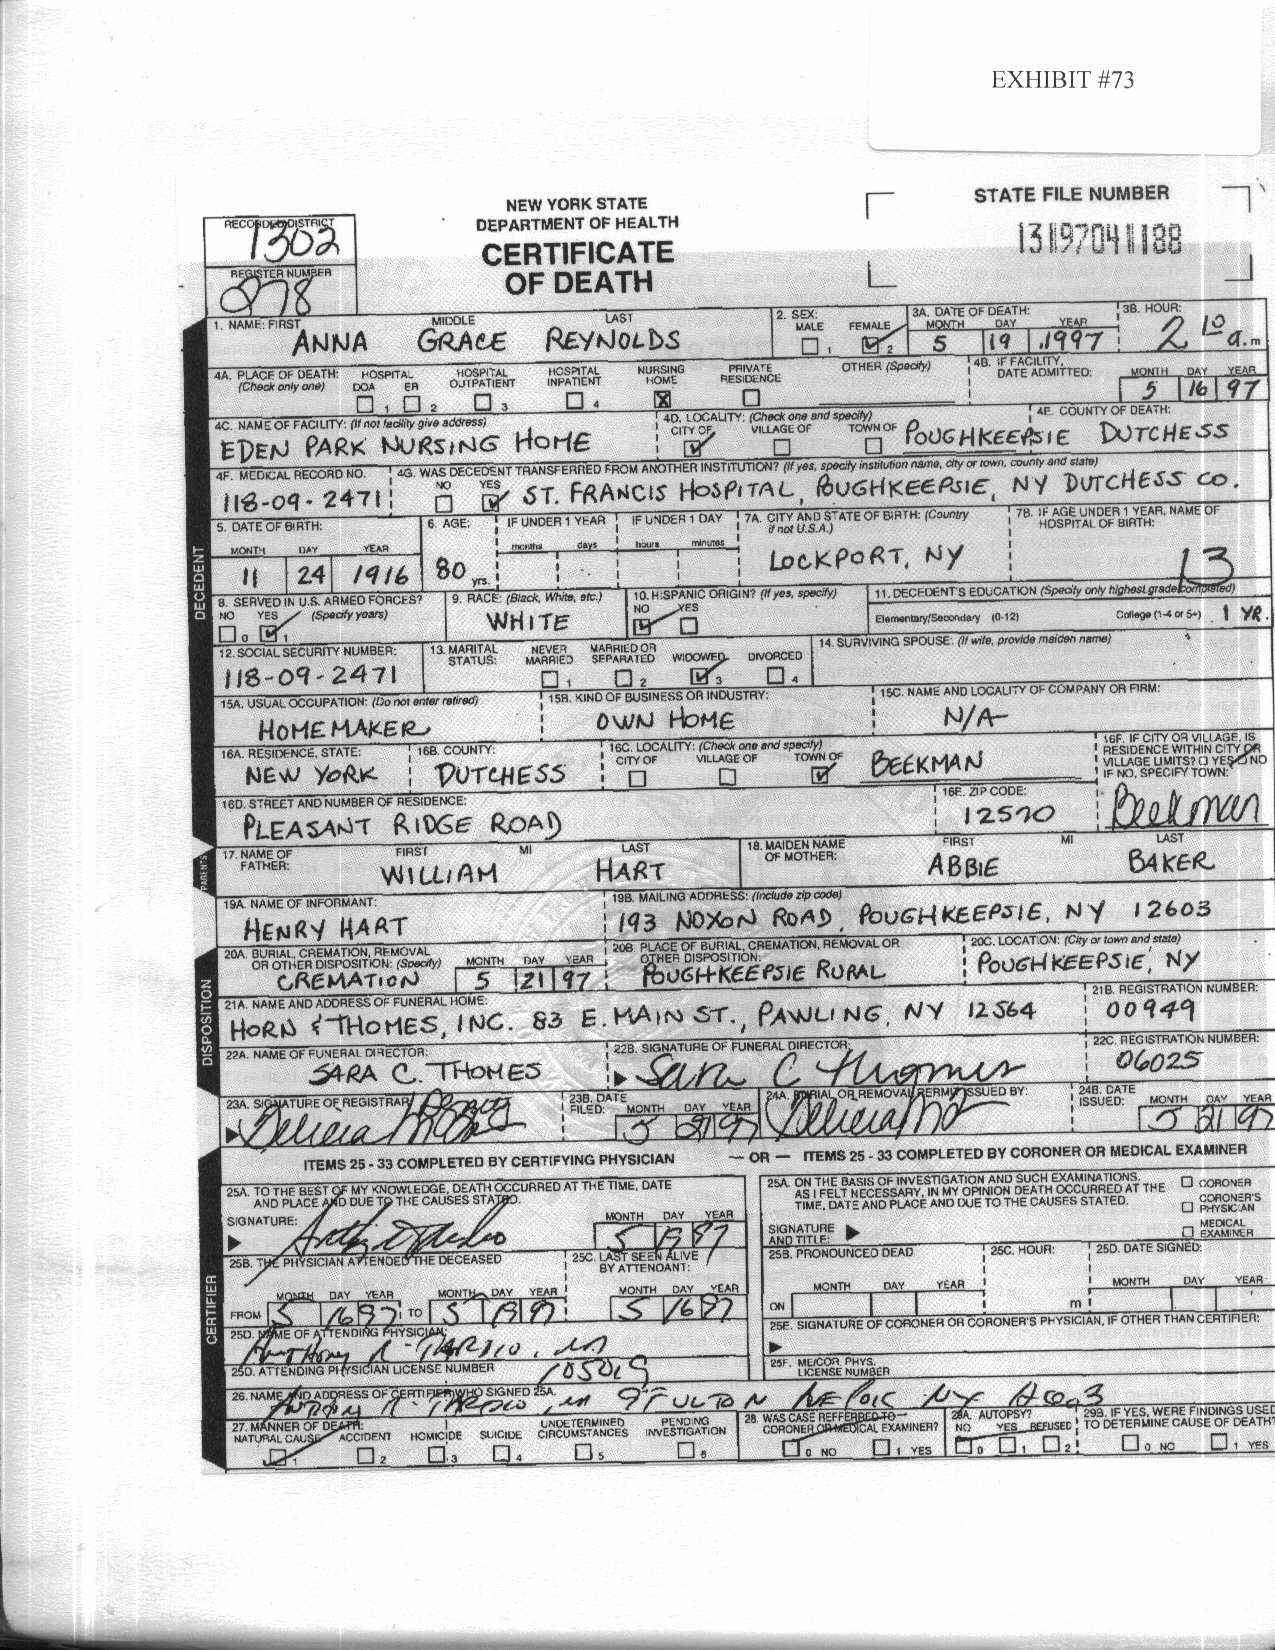 EXHIBIT #73
NEW YORK STATE
DEPARTMENT OF HEALTH
CERTIFICATE
OF DEATH
STATE FILE NUMBER
RECORDED DISTRICT
1302
REGISTER NUMBER
878
1. NAME: FIRST MIDDLE LAST
ANNA GRACE REYNOLDS
2. SEX:
MALE FEMALE
1 2
3A. DATE OF DEATH:
MONTH DAY YEAR
5 19 1997
3B. HOUR:
2 10 a.m
4A. PLACE OF DEATH: (Check only one)
HOSPITAL DOA ER HOSPITAL OUTPATIENT HOSPITAL INPATIENT NURSING HOME PRIVATE RESIDENCE OTHER (Specify)
1 2 3 4 X
4B. IF FACILITY, DATE ADMITTED: MONTH DAY YEAR
5 16 97
4C. NAME OF FACILITY: (If not facility give address)
EDEN PARK NURSING HOME
4D. LOCALITY: (Check one and specify)
CITY OF VILLAGE OF TOWN OF
POUGHKEEPSIE
4E. COUNTY OF DEATH:
DUTCHESS
4F. MEDICAL RECORD NO.
118-09-2471
4G. WAS DECEDENT TRANSFERRED FROM ANOTHER INSTITUTION? (If yes, specify institution name, city or town, county and state)
NO YES
ST. FRANCIS HOSPITAL, POUGHKEEPSIE, NY DUTCHESS CO.
5. DATE OF BIRTH:
MONTH DAY YEAR
11 24 1916
6. AGE:
80 yrs.
IF UNDER 1 YEAR
months days
IF UNDER 1 DAY
hours minutes
7A. CITY AND STATE OF BIRTH: (Country if not U.S.A.)
LOCKPORT, NY
7B. IF AGE UNDER 1 YEAR, NAME OF HOSPITAL OF BIRTH:
8. SERVED IN U.S. ARMED FORCES?
NO YES (Specify years)
0 1
9. RACE: (Black, White, etc.)
WHITE
10. HISPANIC ORIGIN? (If yes, specify)
NO YES
11. DECEDENT'S EDUCATION (Specify only highest grade completed)
13
Elementary/Secondary (0-12) College (1-4 or 5+) 1 YR.
12. SOCIAL SECURITY NUMBER:
118-09-2471
13. MARITAL STATUS:
NEVER MARRIED MARRIED OR SEPARATED WIDOWED DIVORCED
1 2 3 4
14. SURVIVING SPOUSE: (If wife, provide maiden name)
15A. USUAL OCCUPATION: (Do not enter retired)
HOMEMAKER
15B. KIND OF BUSINESS OR INDUSTRY:
OWN HOME
15C. NAME AND LOCALITY OF COMPANY OR FIRM:
N/A
16A. RESIDENCE, STATE:
NEW YORK
16B. COUNTY:
DUTCHESS
16C. LOCALITY: (Check one and specify)
CITY OF VILLAGE OF TOWN OF
BEEKMAN
16F. IF CITY OR VILLAGE, IS RESIDENCE WITHIN CITY OR VILLAGE LIMITS? YES NO
IF NO, SPECIFY TOWN:
Beekman
16D. STREET AND NUMBER OF RESIDENCE:
PLEASANT RIDGE ROAD
16E. ZIP CODE:
12570
17. NAME OF FATHER: FIRST MI LAST
WILLIAM HART
18. MAIDEN NAME OF MOTHER: FIRST MI LAST
ABBIE BAKER
19A. NAME OF INFORMANT:
HENRY HART
19B. MAILING ADDRESS: (Include zip code)
193 NOXON ROAD, POUGHKEEPSIE, NY 12603
20A. BURIAL, CREMATION, REMOVAL OR OTHER DISPOSITION: (Specify)
CREMATION
MONTH DAY YEAR
5 21 97
20B. PLACE OF BURIAL, CREMATION, REMOVAL OR OTHER DISPOSITION:
POUGHKEEPSIE RURAL
20C. LOCATION: (City or town and state)
POUGHKEEPSIE, NY
21A. NAME AND ADDRESS OF FUNERAL HOME:
HORN & THOMES, INC. 83 E. MAIN ST., PAWLING, NY 12564
21B. REGISTRATION NUMBER:
00949
22A. NAME OF FUNERAL DIRECTOR:
SARA C. THOMES
22B. SIGNATURE OF FUNERAL DIRECTOR:
Sara C Thomes
22C. REGISTRATION NUMBER:
06025
23A. SIGNATURE OF REGISTRAR
23B. DATE FILED: MONTH DAY YEAR
5 21 97
24A. BURIAL OR REMOVAL PERMIT ISSUED BY:
24B. DATE ISSUED: MONTH DAY YEAR
5 21 97
ITEMS 25 - 33 COMPLETED BY CERTIFYING PHYSICIAN — OR — ITEMS 25 - 33 COMPLETED BY CORONER OR MEDICAL EXAMINER
25A. TO THE BEST OF MY KNOWLEDGE, DEATH OCCURRED AT THE TIME, DATE
AND PLACE AND DUE TO THE CAUSES STATED.
SIGNATURE:
MONTH DAY YEAR
5 19 97
25A. ON THE BASIS OF INVESTIGATION AND SUCH EXAMINATIONS,
AS I FELT NECESSARY, IN MY OPINION DEATH OCCURRED AT THE
TIME, DATE AND PLACE AND DUE TO THE CAUSES STATED.
CORONER
CORONER'S PHYSICIAN
MEDICAL EXAMINER
SIGNATURE AND TITLE:
25B. THE PHYSICIAN ATTENDED THE DECEASED
MONTH DAY YEAR MONTH DAY YEAR
FROM 5 16 97 TO 5 19 97
25C. LAST SEEN ALIVE BY ATTENDANT:
MONTH DAY YEAR
5 16 97
25B. PRONOUNCED DEAD
MONTH DAY YEAR
ON
25C. HOUR:
m
25D. DATE SIGNED:
MONTH DAY YEAR
25D. NAME OF ATTENDING PHYSICIAN:
25E. SIGNATURE OF CORONER OR CORONER'S PHYSICIAN, IF OTHER THAN CERTIFIER:
25D. ATTENDING PHYSICIAN LICENSE NUMBER
105019
25F. ME/COR. PHYS. LICENSE NUMBER
26. NAME AND ADDRESS OF CERTIFIER WHO SIGNED 25A.
27. MANNER OF DEATH:
NATURAL CAUSE ACCIDENT HOMICIDE SUICIDE UNDETERMINED CIRCUMSTANCES PENDING INVESTIGATION
1 2 3 4 5 6
28. WAS CASE REFERRED TO CORONER OR MEDICAL EXAMINER?
0 NO 1 YES
29A. AUTOPSY?
NO YES REFUSED
0 1 2
29B. IF YES, WERE FINDINGS USED
TO DETERMINE CAUSE OF DEATH?
0 NO 1 YES
DECEDENT
PARENTS
DISPOSITION
CERTIFIER